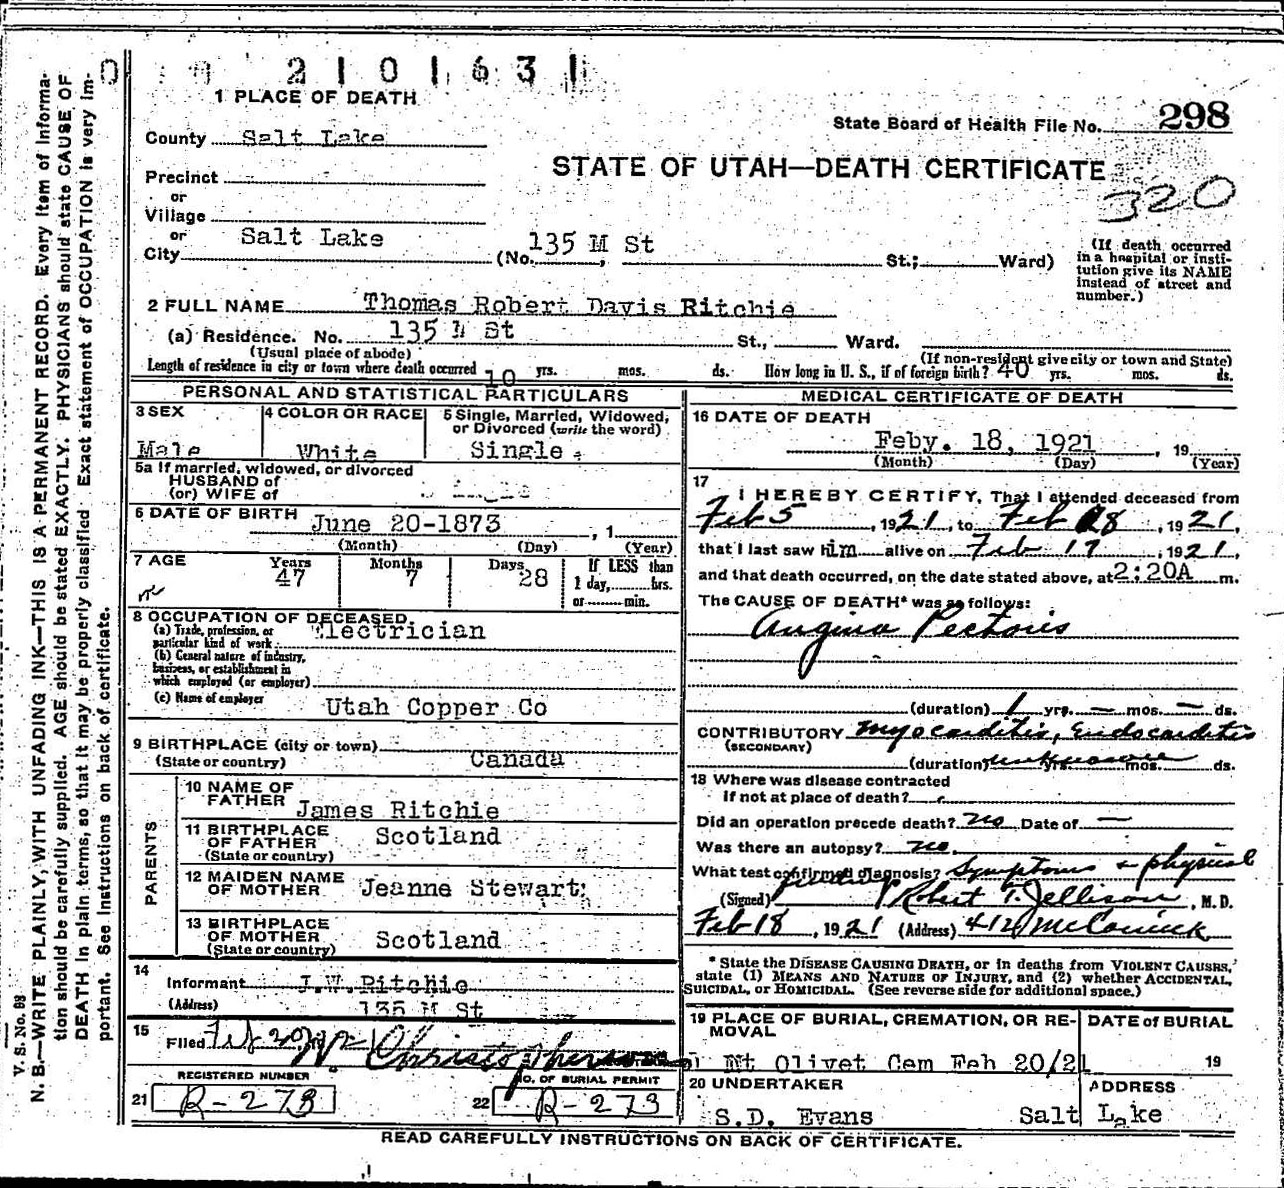 2 1 0 1 6 3 1
1 PLACE OF DEATH
State Board of Health File No. 298
County Salt Lake
STATE OF UTAH—DEATH CERTIFICATE
320
Precinct
or
Village
or
City Salt Lake (No. 135 M St St.; Ward)
(If death occurred in a hospital or institution give its NAME instead of street and number.)
2 FULL NAME Thomas Robert Davis Ritchie
(a) Residence. No. 135 M St St., Ward.
(Usual place of abode) (If non-resident give city or town and State)
Length of residence in city or town where death occurred 10 yrs. mos. ds. How long in U. S., if of foreign birth? 40 yrs. mos. ds.
PERSONAL AND STATISTICAL PARTICULARS
3 SEX Male
4 COLOR OR RACE White
5 Single, Married, Widowed, or Divorced (write the word) Single
5a If married, widowed, or divorced
HUSBAND of
(or) WIFE of
6 DATE OF BIRTH June 20-1873 , 1
(Month) (Day) (Year)
7 AGE Years 47 Months 7 Days 28 If LESS than 1 day, hrs. or min.
8 OCCUPATION OF DECEASED
(a) Trade, profession, or particular kind of work Electrician
(b) General nature of industry, business, or establishment in which employed (or employer)
(c) Name of employer Utah Copper Co
9 BIRTHPLACE (city or town)
(State or country) Canada
PARENTS
10 NAME OF FATHER James Ritchie
11 BIRTHPLACE OF FATHER (State or country) Scotland
12 MAIDEN NAME OF MOTHER Jeanne Stewart
13 BIRTHPLACE OF MOTHER (State or country) Scotland
14
Informant J.W. Ritchie
(Address) 135 M St
15
Filed Feb 20 Wm Christopherson
REGISTERED NUMBER
21 R-273
NO. OF BURIAL PERMIT
22 R-273
MEDICAL CERTIFICATE OF DEATH
16 DATE OF DEATH
Feby. 18, 1921 , 19
(Month) (Day) (Year)
17
I HEREBY CERTIFY, That I attended deceased from
Feb 5 , 1921, to Feb 18 , 1921,
that I last saw him alive on Feb 17 , 1921,
and that death occurred, on the date stated above, at 2:20A m.
The CAUSE OF DEATH* was as follows:
Angina Pectoris
(duration) 1 yrs. — mos. — ds.
CONTRIBUTORY Myocarditis, Endocarditis
(SECONDARY)
(duration) unknown yrs. mos. ds.
18 Where was disease contracted
if not at place of death?
Did an operation precede death? no Date of —
Was there an autopsy? no
What test confirmed diagnosis? Symptoms & physical
finding
(Signed) Robert T. Jellison, M. D.
Feb 18 , 1921 (Address) 412 McCornick
* State the DISEASE CAUSING DEATH, or in deaths from VIOLENT CAUSES, state (1) MEANS AND NATURE OF INJURY, and (2) whether ACCIDENTAL, SUICIDAL, or HOMICIDAL. (See reverse side for additional space.)
19 PLACE OF BURIAL, CREMATION, OR REMOVAL Mt Olivet Cem
DATE of BURIAL Feb 20/21 19
20 UNDERTAKER S.D. Evans
ADDRESS Salt Lake
READ CAREFULLY INSTRUCTIONS ON BACK OF CERTIFICATE.
V. S. No. 98
N. B.—WRITE PLAINLY, WITH UNFADING INK—THIS IS A PERMANENT RECORD. Every item of information should be carefully supplied. AGE should be stated EXACTLY. PHYSICIANS should state CAUSE OF DEATH in plain terms, so that it may be properly classified. Exact statement of OCCUPATION is very important. See instructions on back of certificate.